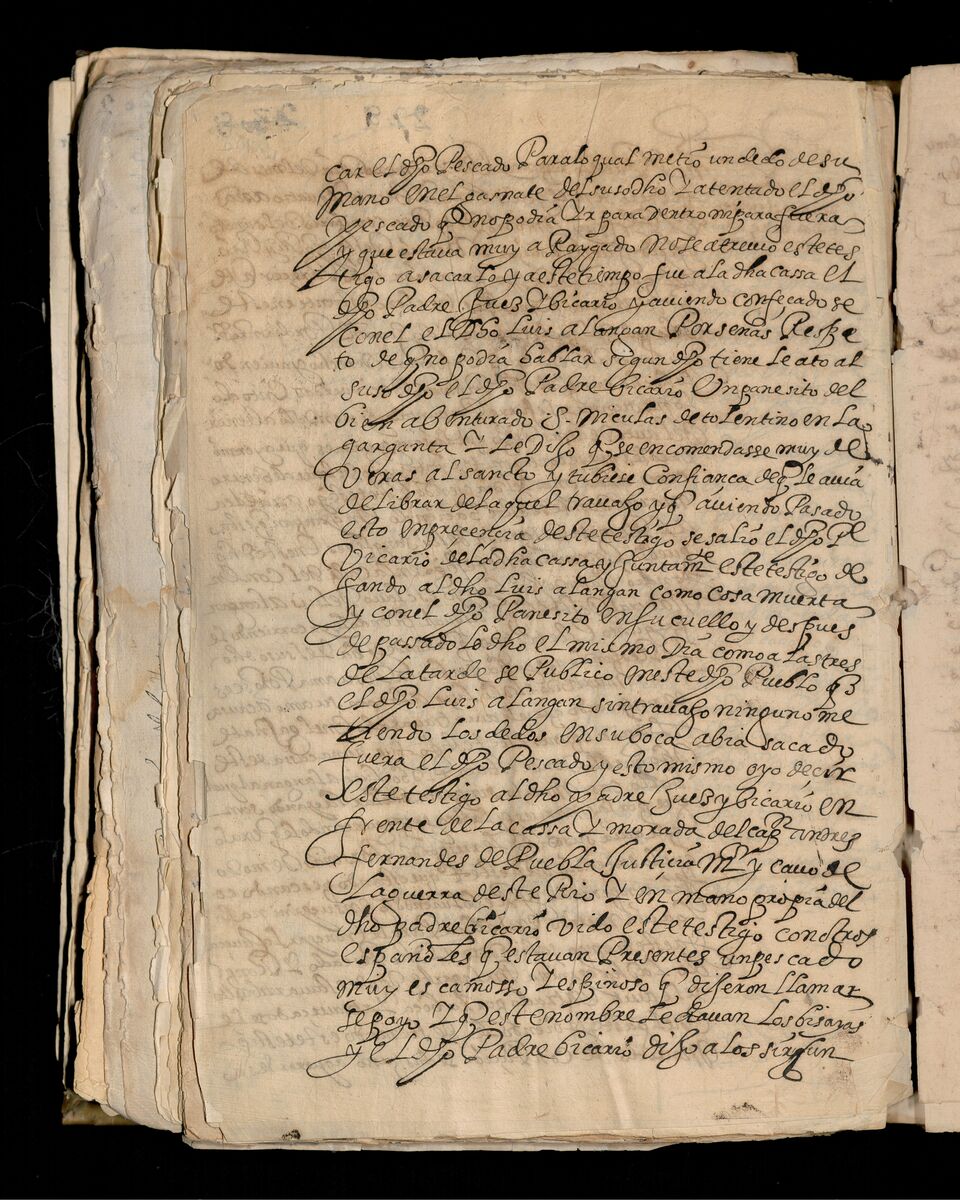 car el dho Pescado Para lo qual metio un dedo de su
mano en el gasnate del susodho y atentado el dho
Pescado q no podia yr para dentro ni para fuera
y que estava muy a Raygado no se atrevio este tes
tigo a sacarlo y a este tiempo fue a la dha cassa el
dho Padre Juez y bicario y aviendo confecado se
con el el dho Luis alangan Por señas Respe
to de q no podia hablar sigun dho tiene le ato al
suso dho el dho Padre bicario un panesito del
bien abenturado S. Niculas de tolentino en la
garganta y le dixo q se encomendasse muy de
veras al sancto y tubiese Confiança de q le avia
de librar de aquel travaxo y q aviendo Pasado
esto en precencia deste testigo se salio el dho Pe
Vicario de la dha cassa y juntamte este testigo de
xando al dho Luis alangan como cosa muerta
y con el dho Panesito en su cuello y despues
de passado lo dho el mismo dia como a las tres
de la tarde se Publico en este dho Pueblo q
el dho Luis alangan sin travaxo ninguno me
tiendo los dedos en su boca abia sacado
fuera el dho Pescado y esto mismo oyo decir
este testigo al dho padre Juez y bicario en
frente de la cassa y morada del capn andres
fernandes de Puebla Justicia Mr y cavo de
la guerra deste Rio y en mano propia del
dho padre bicario vido este testigo con otros
españoles q estavan Presentes un pescado
muy escamosso y espinoso q dixeron llamar
se poyo y q este nombre le davan los bisaras
y el dho Padre bicario dixo a los sirjun